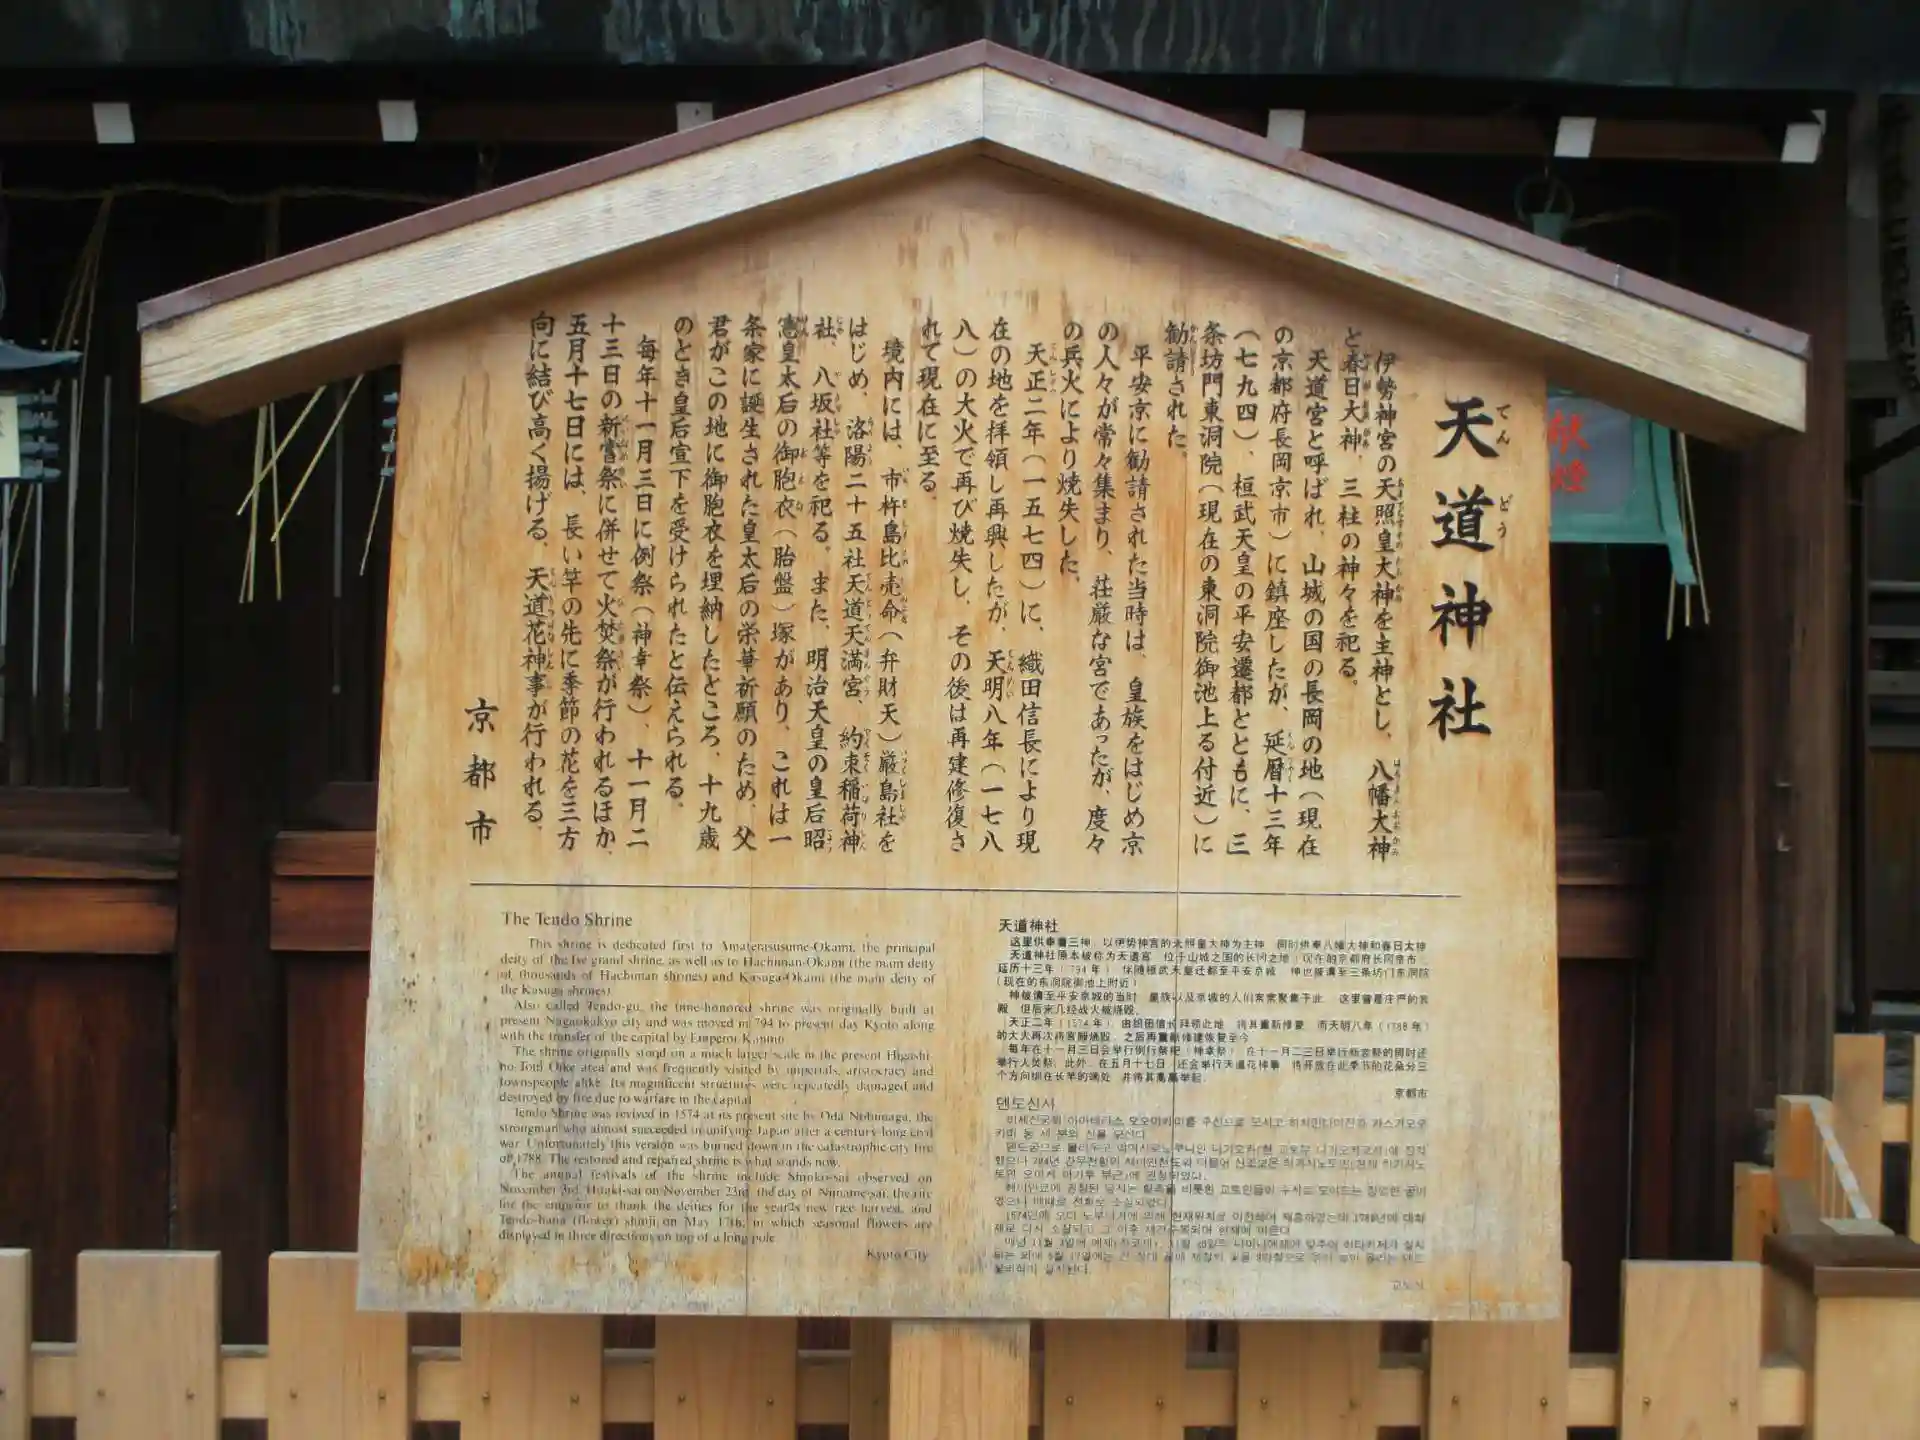 天道神社
てんどう
伊勢神宮の天照皇大神を主神とし、八幡大神
と春日大神、三柱の神々を祀る。
天道宮と呼ばれ、山城の国の長岡の地(現在
の京都府長岡京市)に鎮座したが、延暦十三年
(七九四)、桓武天皇の平安遷都とともに、三
条坊門東洞院(現在の東洞院御池上る付近)に
勧請された。
平安京に勧請された当時は、皇族をはじめ京
の人々が常々集まり、荘厳な宮であったが、度々
の兵火により焼失した。
天正二年(一五七四)に、織田信長により現
在の地を拝領し再興したが、天明八年(一七八
八)の大火で再び焼失し、その後は再建修復さ
れて現在に至る。
境内には、市杵島比売命(弁財天)厳島社を
はじめ、洛陽二十五社天道天満宮、約束稲荷神
社、八坂社等を祀る。また、明治天皇の皇后昭
憲皇太后の御胞衣(胎盤)塚があり、これは一
条家に誕生された皇太后の栄華祈願のため、父
君がこの地に御胞衣を埋納したところ、十九歳
のとき皇后宣下を受けられたと伝えられる。
毎年十一月三日に例祭(神幸祭)、十一月二
十三日の新嘗祭に併せて火焚祭が行われるほか、
五月十七日には、長い竿の先に季節の花を三方
向に結び高く揚げる、天道花神事が行われる。
京都市
The Tendo Shrine
This shrine is dedicated first to Amaterasusume-Okami, the principal
deity of the Ise grand shrine, as well as to Hachiman-Okami (the main deity
of thousands of Hachiman shrines) and Kasuga-Okami (the main deity of
the Kasuga shrines).
Also called Tendo-gu, the time-honored shrine was originally built at
present Nagaokakyo city and was moved in 794 to present day Kyoto along
with the transfer of the capital by Emperor Kanmu.
The shrine originally stood on a much larger scale in the present Higashi-
no-Toin Oike area and was frequently visited by imperials, aristocracy and
townspeople alike. Its magnificent structures were repeatedly damaged and
destroyed by fire due to warfare in the capital.
Tendo Shrine was revived in 1574 at its present site by Oda Nobunaga, the
strongman who almost succeeded in unifying Japan after a century-long civil
war. Unfortunately this version was burned down in the catastrophic city fire
of 1788. The restored and repaired shrine is what stands now.
The annual festivals of the shrine include Shinko-sai observed on
November 3rd, Hitaki-sai on November 23rd, the day of Niiname-sai, the rite
for the emperor to thank the deities for the year's new rice harvest, and
Tendo-bana (flower) shinji on May 17th, in which seasonal flowers are
displayed in three directions on top of a long pole.
Kyoto City
天道神社
这里供奉着三神：以伊势神宫的天照皇大神为主神，同时供奉八幡大神和春日大神
天道神社原本被称为天道宫，位于山城之国的长冈之地(现在的京都府长冈京市)
延历十三年(794年)，伴随桓武天皇迁都至平安京城，神也被请至三条坊门东洞院
(现在的东洞院御池上附近)
神被请至平安京城的当时，皇族以及京城的人们常常聚集于此，这里曾是庄严的宫
殿，但后来几经战火被烧毁。
天正二年(1574年)，由织田信长拜领此地，将其重新修复，而天明八年(1788年)
的大火再次将宫殿烧毁，之后再重新修建恢复至今
每年在十一月三日会举行例行祭祀(神幸祭)，在十一月二三日举行新尝祭的同时还
举行火焚祭，此外，在五月十七日，还会举行天道花神事，将开放在此季节的花朵分三
个方向绑在长竿的端处，并将其高高举起。
京都市
덴도신사
교토시
献
燈